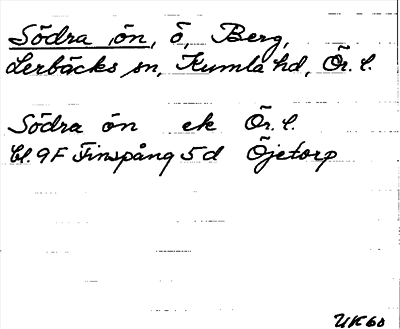 Södra ön, ö, Berg,
Lerbäcks sn, Kumla hd, Ör. l.
Södra ön ek Ör. l.
bl. 9F Finspång 5d Öjetorp
UK60